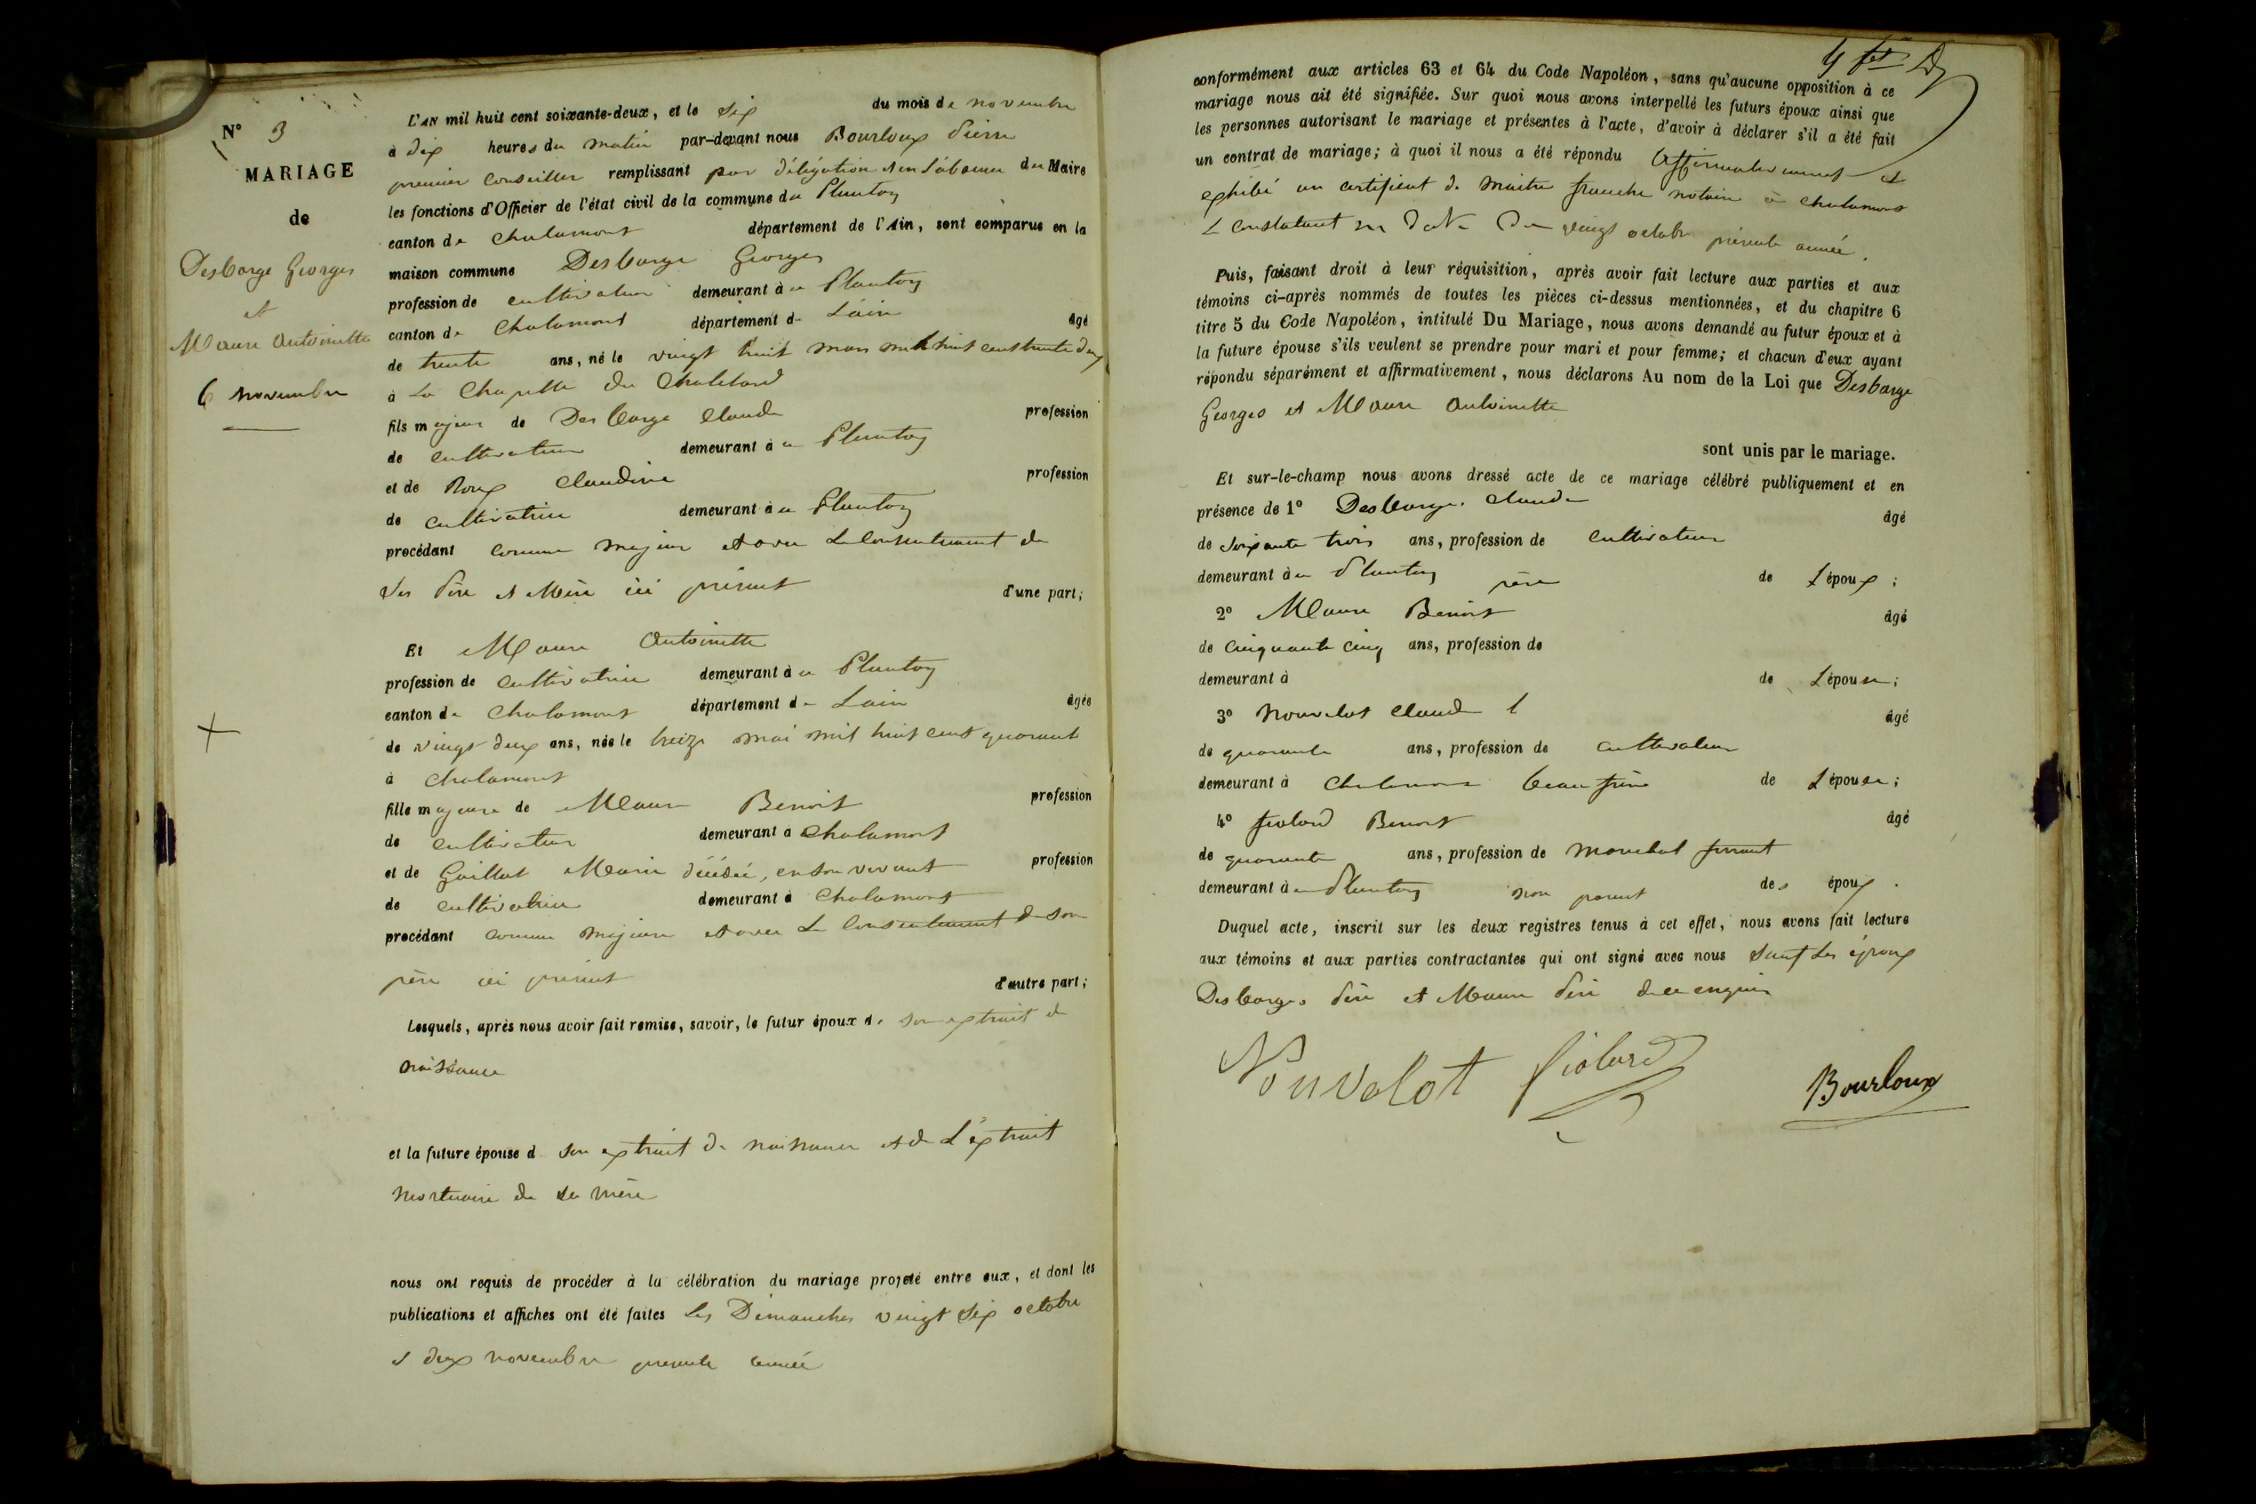 N° 3
MARIAGE
de
Desbarge Georges
et
Maure Antoinette
6 novembre
L'AN mil huit cent soixante-deux, et le six du mois de novembre
à dix heures du matin par-devant nous Bourloux Pierre
premier conseiller remplissant par délégation et en l'absence du Maire
les fonctions d'Officier de l'état civil de la commune du Plantay
canton de Chalamont département de l'Ain, sont comparus en la
maison commune Desbarge Georges
profession de cultivateur demeurant à u Plantay
canton de Chalamont département de L'ain âgé
de trente ans, né le vingt huit mars mil huit cent trente deux
à La Chapelle du Chatelard
fils majeur de Desbarge Claude profession
de cultivateur demeurant à u Plantay
et de Roux Claudine profession
de cultivatrice demeurant à u Plantay
procédant comme majeur et avec Le Consentement de
Ses Père et Mère ici présent d'une part;
Et Maure Antoinette
profession de cultivatrice demeurant à u Plantay
canton de Chalamont département de Lain âgée
de vingt deux ans, née le treize mai mil huit cent quarante
à Chalamont
fille majeure de Maure Benoit profession
de cultivateur demeurant à Chalamont
et de Guillot Marie décédée, en son vivant profession
de cultivatrice demeurant à Chalamont
procédant comme majeure et avec Le Consentement de son
père ici présent d'autre part;
Lesquels, après nous avoir fait remise, savoir, le futur époux de son extrait de
naissance
et la future épouse d son extrait de naissance et de L'extrait
mortuaire de sa mère
nous ont requis de procéder à la célébration du mariage projeté entre eux, et dont les
publications et affiches ont été faites les Dimanches vingt six octobre
et deux novembre présente année
conformément aux articles 63 et 64 du Code Napoléon, sans qu'aucune opposition à ce
mariage nous ait été signifiée. Sur quoi nous avons interpellé les futurs époux ainsi que
les personnes autorisant le mariage et présentes à l'acte, d'avoir à déclarer s'il a été fait
un contrat de mariage; à quoi il nous a été répondu Affirmativement et
exhibé un certificat de maitre franche notaire à Chalamont
Le Constatant en date du vingt octobre présente année.
Puis, faisant droit à leur réquisition, après avoir fait lecture aux parties et aux
témoins ci-après nommés de toutes les pièces ci-dessus mentionnées, et du chapitre 6
titre 5 du Code Napoléon, intitulé Du Mariage, nous avons demandé au futur époux et à
la future épouse s'ils veulent se prendre pour mari et pour femme; et chacun d'eux ayant
répondu séparément et affirmativement, nous déclarons Au nom de la Loi que Desbarge
Georges et Maure Antoinette
sont unis par le mariage.
Et sur-le-champ nous avons dressé acte de ce mariage célébré publiquement et en
présence de 1° Desbarge Claude âgé
de soixante trois ans, profession de Cultivateur
demeurant à u Plantay père de L'époux;
2° Maure Benoit âgé
de cinquante cinq ans, profession de
demeurant à de L'épouse;
3° Nouvelot Claude âgé
de quarante ans, profession de cultivateur
demeurant à Chalamont beau frère de L'épouse;
4° fiolard Benoit âgé
de quarante ans, profession de marechal ferrant
demeurant à u Plantay non parent des époux.
Duquel acte, inscrit sur les deux registres tenus à cet effet, nous avons fait lecture
aux témoins et aux parties contractantes qui ont signé avec nous sauf Les époux
Desbarge Père et Maure Père de ce enquis
Nouvelot fiolard Bourloux